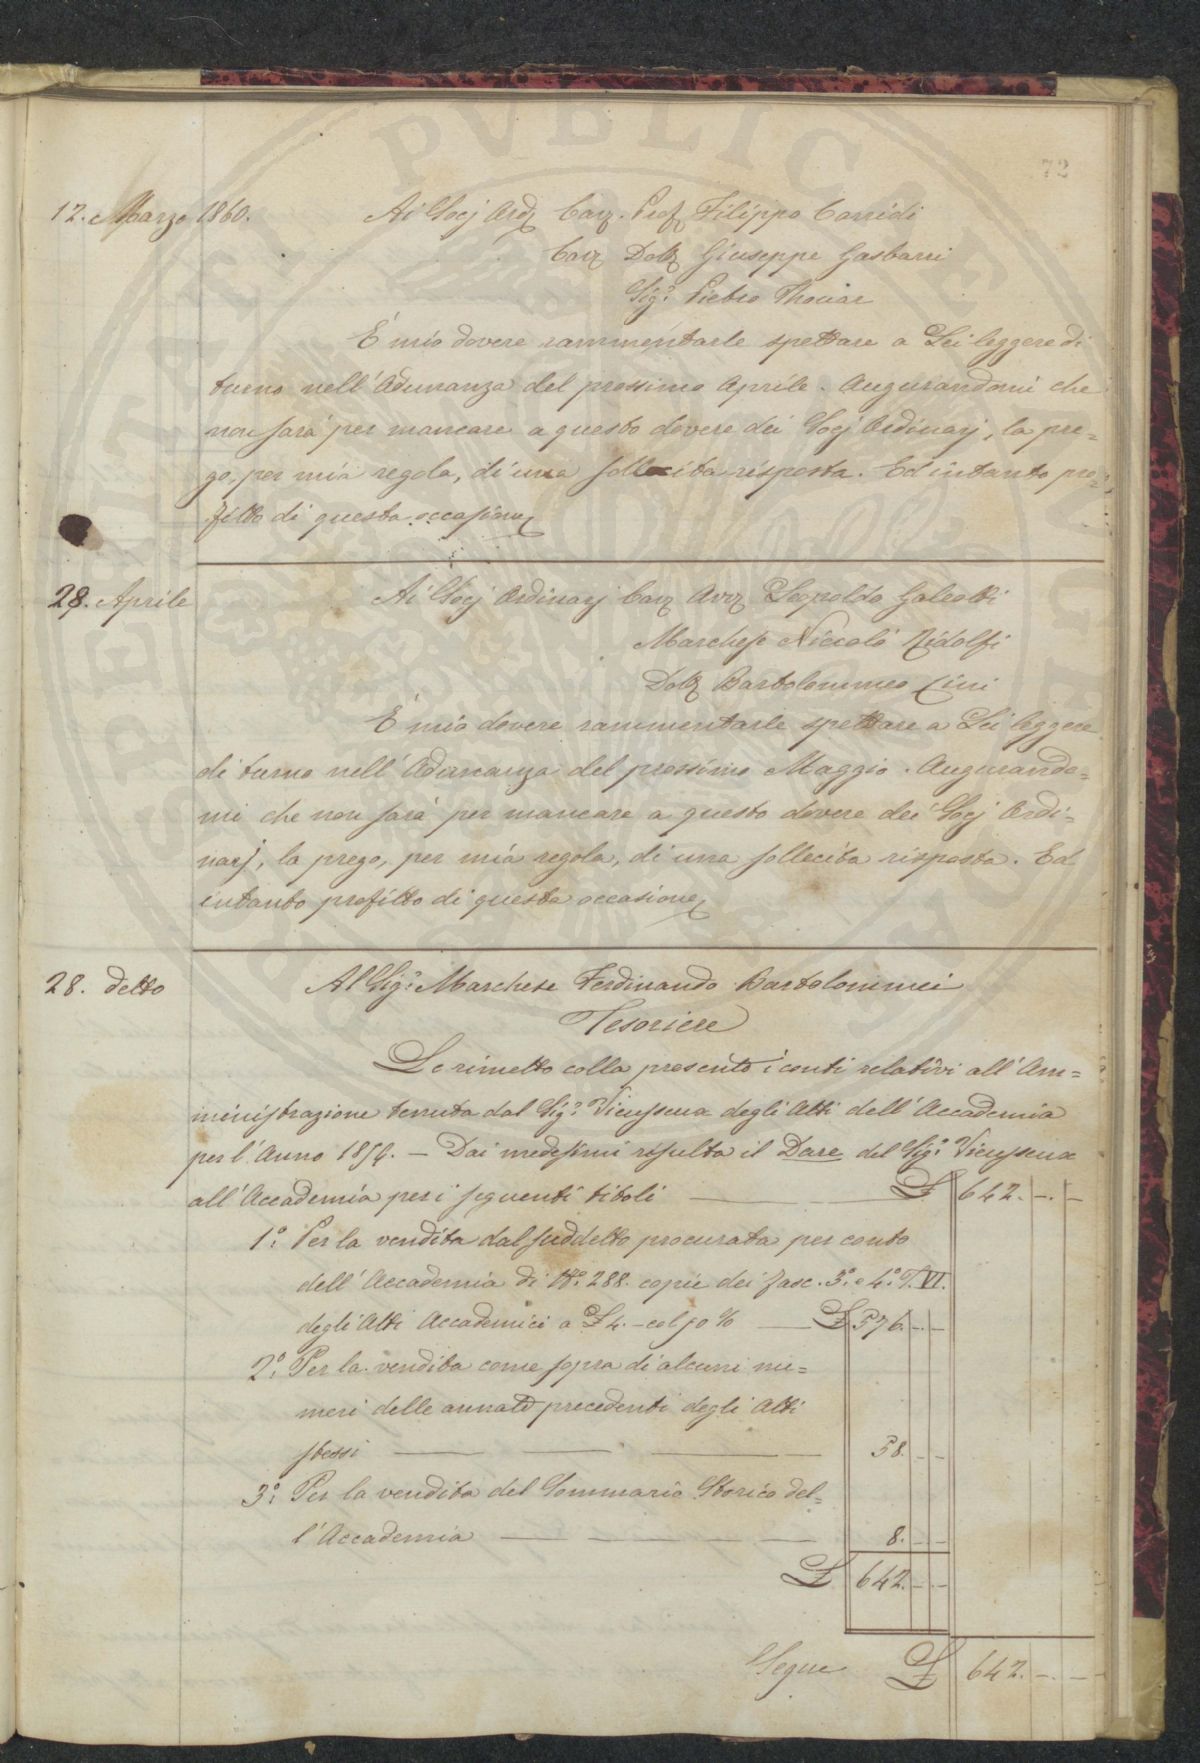 PVBLICAE
72
12. Marzo 1860.
Ai Socj Ord. Cav. Prof. Filippo Corridi
Cav. Dott. Giuseppe Gasbarri
Sig.e Pietro Thouar
È mio dovere rammentarle spettare a Lei leggere di
turno nell'Adunanza del prossimo Aprile. Augurandomi che
non sarà per mancare a questo dovere dei Socj Ordinarj, la pre=
go, per mia regola, di una sollecita risposta. Ed intanto pro=
fitto di questa occasione
28. Aprile
Ai Socj Ordinarj Cav. Avv. Leopoldo Galeotti
Marchese Niccolò Ridolfi
Dott. Bartolommeo Cini
È mio dovere rammentarle spettare a Lei leggere
di turno nell'Adunanza del prossimo Maggio. Augurando=
mi che non sarà per mancare a questo dovere dei Socj Ordi=
narj, la prego, per mia regola, di una sollecita risposta. Ed
intanto profitto di questa occasione
28. detto
Al Sig.e Marchese Ferdinando Bartolommei
Tesoriere
Le rimetto colla presente i conti relativi all'Am=
ministrazione tenuta dal Sig.e Vieusseux degli Atti dell'Accademia
per l'Anno 1859. — Dai medesimi risulta il Dare del Sig.e Vieusseux
all'Accademia per i seguenti titoli — £ 642. — . —
1.° Per la vendita dal suddetto procurata per conto
dell'Accademia di N.° 288. copie dei fasc. 3.° e 4.° T. VI.
degli Atti Accademici a £ 4. — col 50 % — £ 576. — . —
2.° Per la vendita come sopra di alcuni nu=
meri delle annate precedenti degli Atti
stessi — — — 58. — . —
3.° Per la vendita del Sommario Storico del=
l'Accademia — — — — 8. — . —
£ 642. — . —
Segue £ 642. — . —